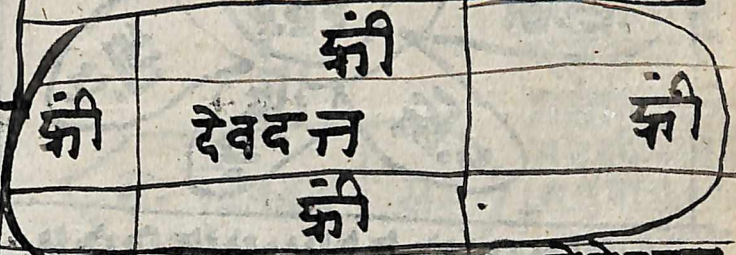 क्रीं
क्रीं देवदत्त क्रीं
क्रीं